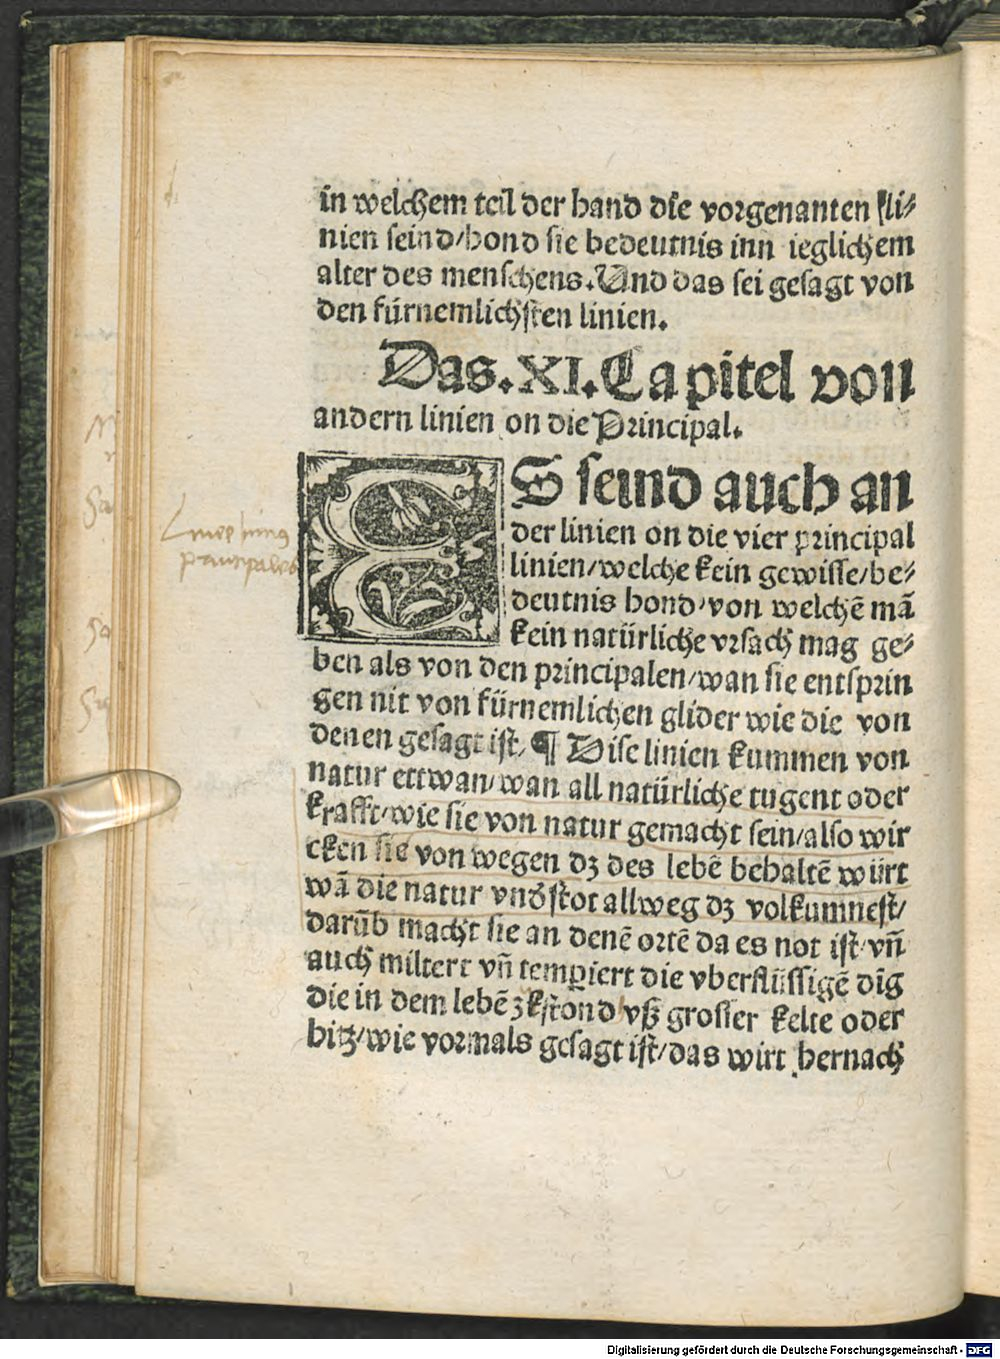 in welchem teil der hand die vorgenanten li⸗
nien seind/hond sie bedeutnis inn ieglichem
alter des menschens. Und das sei gesagt von
den fürnemlichsten linien.
Das. XI. Capitel von
andern linien on die Principal.
ES seind auch an
der linien on die vier principal
linien/welche kein gewisse/be⸗
deutnis hond/von welchē mā
kein natürliche vrsach mag ge⸗
ben als von den principalen/wan sie entsprin
gen nit von fürnemlichen glider wie die von
denen gesagt ist/ ¶ Dise linien kummen von
natur ettwan/wan all natürliche tugent oder
krafft/wie sie von natur gemacht sein/also wir
cken sie von wegen dz des lebē behaltē würt
wā die natur vnd̕stot allweg dz volkumnest/
darūb macht sie an denē ortē da es not ist/vn̄
auch miltert vn̄ temꝑiert die vberflüssigē dīg
die in dem lebē zkstond/vß grosser kelte oder
hitz/wie vormals gesagt ist/das wirt hernach
principales
Digitalisierung gefördert durch die Deutsche Forschungsgemeinschaft - DFG